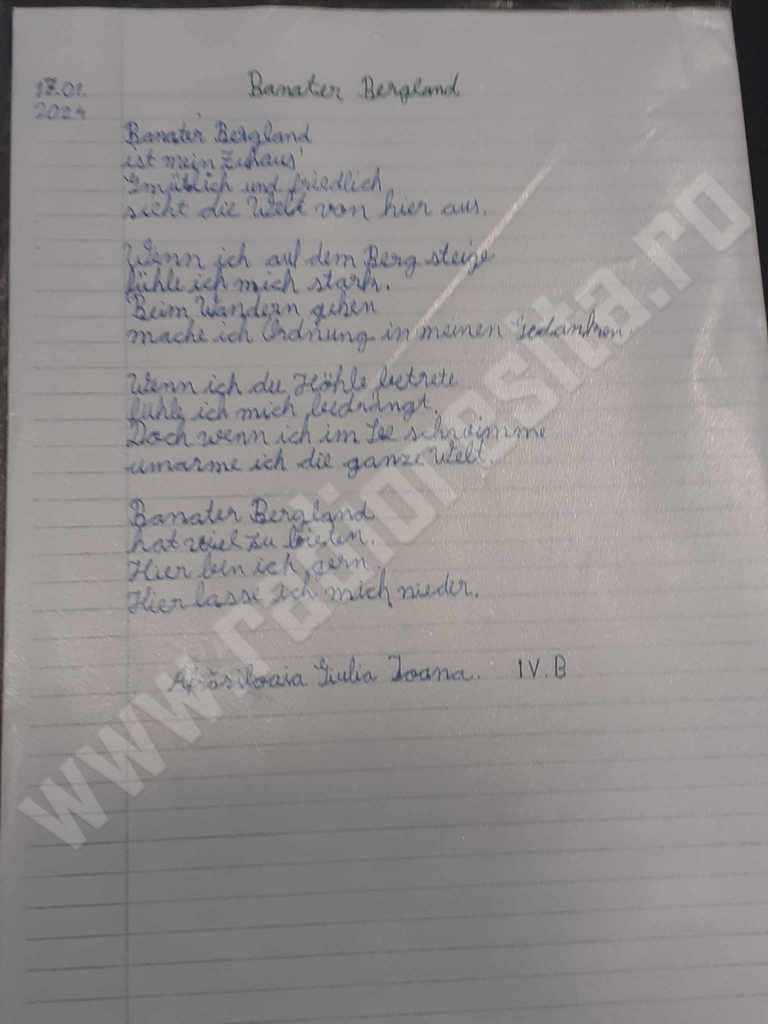 17.01.
2024
Banater Bergland
Banater Bergland
ist mein Zuhaus'
Gmütlich und friedlich
sieht die Welt von hier aus.
Wenn ich auf dem Berg steige
fühle ich mich stark.
Beim Wandern gehen
mache ich Ordnung in meinen
Wenn ich die Höhle betrete
fühle ich mich bedrängt.
Doch wenn ich im See schwimme
umarme ich die ganze Welt.
Banater Bergland
hat viel zu bieten.
Hier bin ich gern
Hier lasse ich mich nieder.
Giulia Ioana. IV.B
www.radioresita.ro